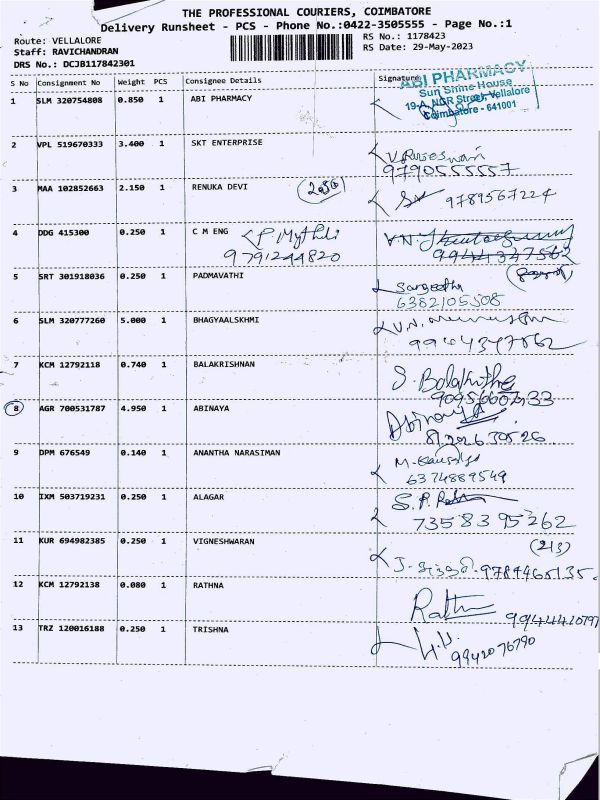 THE PROFESSIONAL COURIERS, COIMBATORE
Delivery Runsheet - PCS - Phone No.:0422-3505555 - Page No.:1
Route: VELLALORE RS No.: 1178423
Staff: RAVICHANDRAN RS Date: 29-May-2023
DRS No.: DCJB117842301
S No Consignment No Weight PCS Consignee Details Signature
ABI PHARMACY
Sun Shine House
19-A, NGR Street, Vellalore
Coimbatore - 641001
1 SLM 320754808 0.850 1 ABI PHARMACY
2 VPL 519670333 3.400 1 SKT ENTERPRISE
9790555557
3 MAA 102852663 2.150 1 RENUKA DEVI
9789567224
4 DDG 415300 0.250 1 C M ENG P. Mythili
9791244820 9944347562
5 SRT 301918036 0.250 1 PADMAVATHI Sangeetha
6382105508
6 SLM 320777260 5.000 1 BHAGYAALSKHMI V.N.
9944347562
7 KCM 12792118 0.740 1 BALAKRISHNAN S. Balakrithe
8 AGR 700531787 4.950 1 ABINAYA Abinaya
9 DPM 676549 0.140 1 ANANTHA NARASIMAN M. Kausalya
6374889549
10 IXM 503719231 0.250 1 ALAGAR S. P.
7358395262
11 KUR 694982385 0.250 1 VIGNESHWARAN (213)
J. 9789465135.
12 KCM 12792138 0.080 1 RATHNA Rathna
9944410797
13 TRZ 120016188 0.250 1 TRISHNA
9942076790